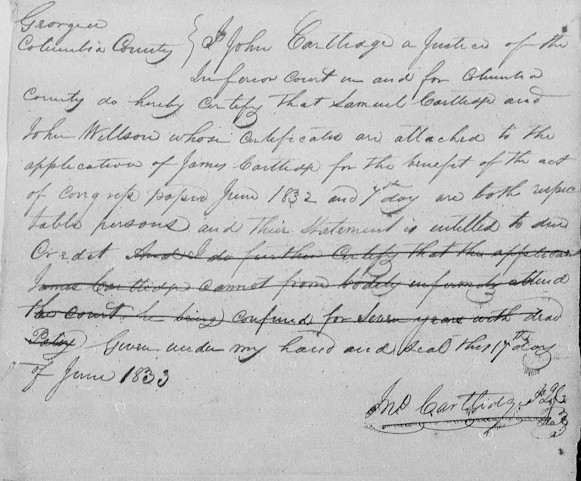 Georgia
Columbia County } I John Cartledge a Justice of the
Inferior Court in and for Columbia
County do hereby Certify that Samuel Cartledge and
John Willson whose Certificates are attached to the
application of James Cartledge for the benefit of the act
of Congress passed June 1832 and 7th day are both respec
table persons and their Statement is intitled to due
Credit And I do further Certify that the applicant
James Cartledge Cannot from bodily infirmity attend
the Court he being confined for Seven years with dead
Palsy Given under my hand and Seal this 17th day
of June 1833
Jno Cartledge